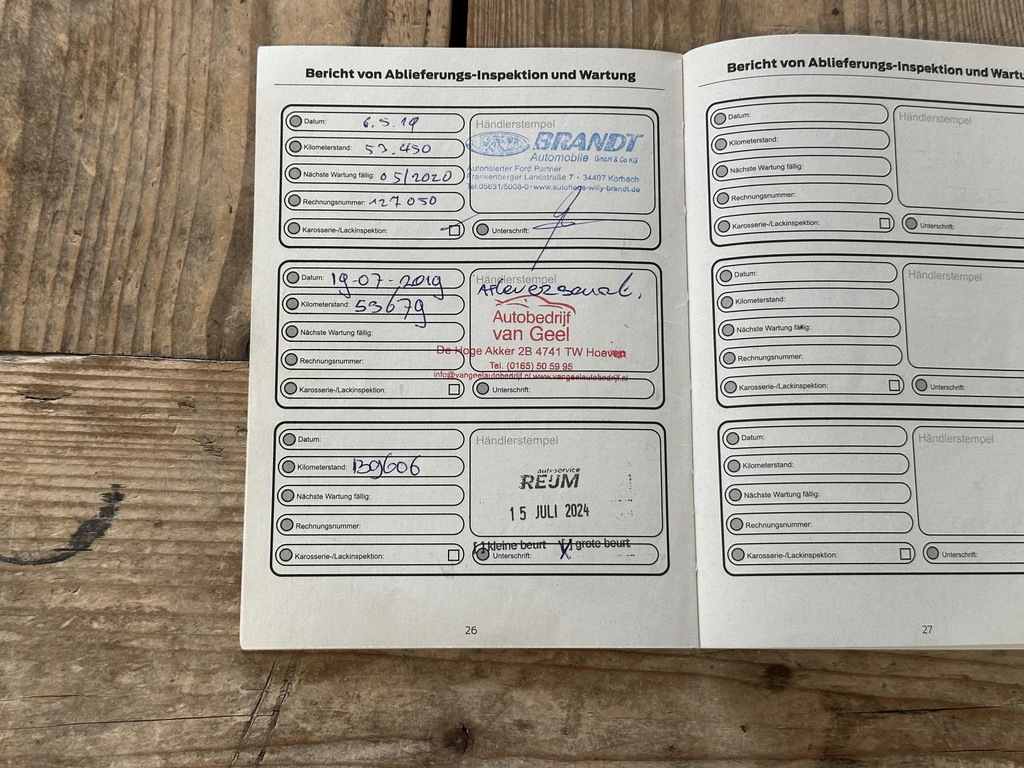 Bericht von Ablieferungs-Inspektion und Wartung
Datum: 6.5.19
Kilometerstand: 53.450
Nächste Wartung fällig: 05/2020
Rechnungsnummer: 127050
Karosserie-/Lackinspektion:
Händlerstempel
BRANDT
Automobile GmbH & Co KG
Autorisierter Ford Partner
Frankenberger Landstraße 7 · 34497 Korbach
Tel. 05631/5008-0 · www.autohaus-willy-brandt.de
Unterschrift:
Datum: 19-07-2019
Kilometerstand: 53679
Nächste Wartung fällig:
Rechnungsnummer:
Karosserie-/Lackinspektion:
Händlerstempel
Autobedrijf
van Geel
De Hoge Akker 2B 4741 TW Hoeven
Tel. (0165) 50 59 95
info@vangeelautobedrijf.nl www.vangeelautobedrijf.nl
Unterschrift:
Datum:
Kilometerstand: 139606
Nächste Wartung fällig:
Rechnungsnummer:
Karosserie-/Lackinspektion:
Händlerstempel
autoservice
REIJM
15 JULI 2024
[ ] kleine beurt [X] grote beurt
Unterschrift:
26
Bericht von Ablieferungs-Inspektion und Wartu
Datum:
Kilometerstand:
Nächste Wartung fällig:
Rechnungsnummer:
Karosserie-/Lackinspektion:
Händlerstempel
Unterschrift:
Datum:
Kilometerstand:
Nächste Wartung fällig:
Rechnungsnummer:
Karosserie-/Lackinspektion:
Händlerstempel
Unterschrift:
Datum:
Kilometerstand:
Nächste Wartung fällig:
Rechnungsnummer:
Karosserie-/Lackinspektion:
Händlerstempel
Unterschrift:
27